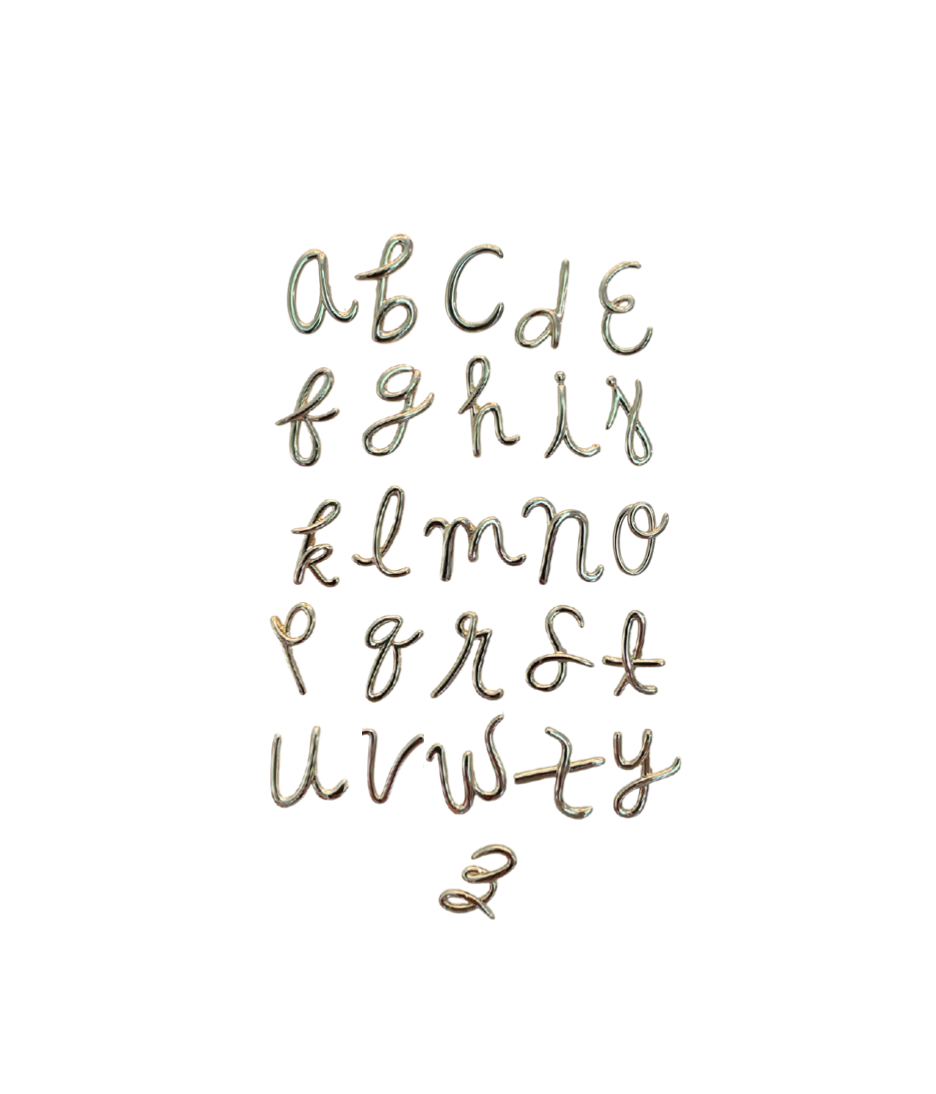 a b c d ε
f g h i j
k l m n o
p q r s t
u v w x y
z